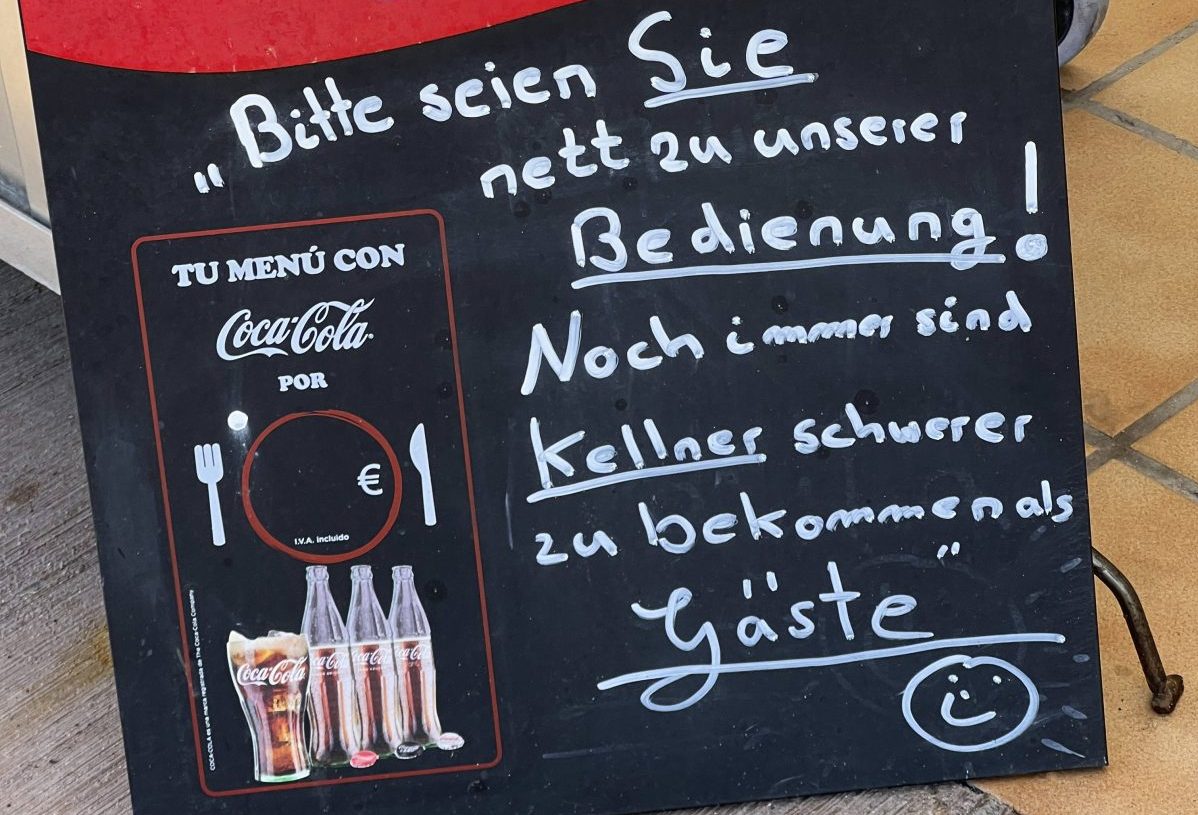 „Bitte seien Sie
nett zu unserer
Bedienung!
Noch immer sind
Kellner schwerer
zu bekommen als
Gäste"
TU MENÚ CON
Coca-Cola
POR
€
I.V.A. incluido
COCA-COLA es una marca registrada de The Coca-Cola Company
Coca-Cola
Coca-Cola
Coca-Cola
Coca-Cola